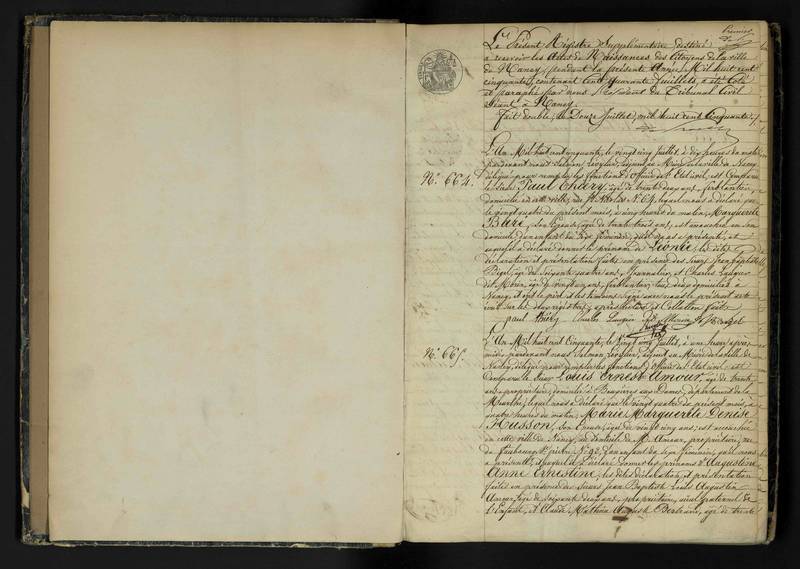 Premier
Le Présent Registre Supplémentaire, destiné
à recevoir les Actes de Naissances des Citoyens de la ville
de Nancy, pendant la présente Année Mil huit cent
cinquante, contenant Cent quarante feuillets, a été coté
et paraphé par nous Président du Tribunal Civil
séant à Nancy.
Fait double, le Douze Juillet, mil huit cent Cinquante.
L'An Mil huit cent cinquante, le vingt cinq Juillet, à dix heures du matin
pardevant nous Salmon Levylier, adjoint au Maire de la ville de Nancy,
délégué pour remplir les fonctions d'Officier de l'Etat civil, est Comparu
No. 664.
le sieur Paul Théry, âgé de trente deux ans, ferblantier,
domicilié en cette ville, rue St Nicolas No. 69, lequel nous a déclaré que
le vingt quatre du présent mois, à cinq heures du matin, Marguerite
Baré, son Epouse, âgée de trente trois ans, est accouchée en son
domicile d'un enfant du sexe féminin, qu'il nous a présenté, et
auquel il a déclaré donner le prénom de Léonie; les dites
déclaration et présentation faites en présence des sieurs Jean Baptiste
âgé de soixante quatre ans, Journalier, et Charles Laugier
dit Morin, âgé de vingt ans, ferblantier, tous deux domiciliés à
Nancy, et ont le père et les témoins signé avec nous le présent acte
inscrit sur les deux registres, après lecture et Collation faite.
paul théry Charles Laugier dit Morin
No. 665.
L'An Mil huit cent Cinquante, le Vingt cinq Juillet, à une heure après
midi, pardevant nous Salmon Levylier, adjoint au Maire de la ville de
Nancy, délégué pour remplir les fonctions d'Officier de l'Etat civil, est
Comparu le sieur Louis Ernest Amour, âgé de trente
ans, propriétaire, domicilié à aux Dames, département de la
Meurthe, lequel nous a déclaré que le vingt quatre du présent mois, à
quatre heures du matin, Marie Marguerite Denise
Husson, son Epouse, âgée de vingt cinq ans; est accouchée
en cette ville de Nancy, au domicile de M. Amour, propriétaire, rue
du faubourg St pierre No. 92, d'un enfant du sexe féminin, qu'il nous
a présenté, et auquel il a déclaré donner les prénoms d'Augustine
Anne Ernestine; les dites déclaration et présentation
faites en présence des sieurs Jean Baptiste Louis Augustin
Amour, âgé de soixante deux ans, propriétaire, aïeul paternel de
l'Enfant, et Claude Mathieu Auguste Bertrand, âgé de trente